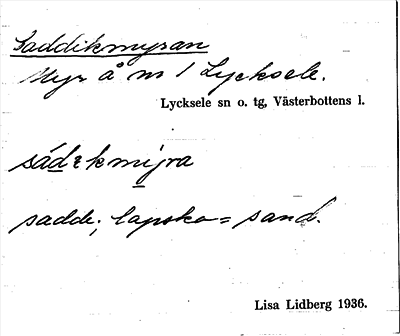 Saddikmyran
Myr å n 1 Lycksele.
Lycksele sn o. tg, Västerbottens l.
sádikmyra
sadde; lapska = sand.
Lisa Lidberg 1936.